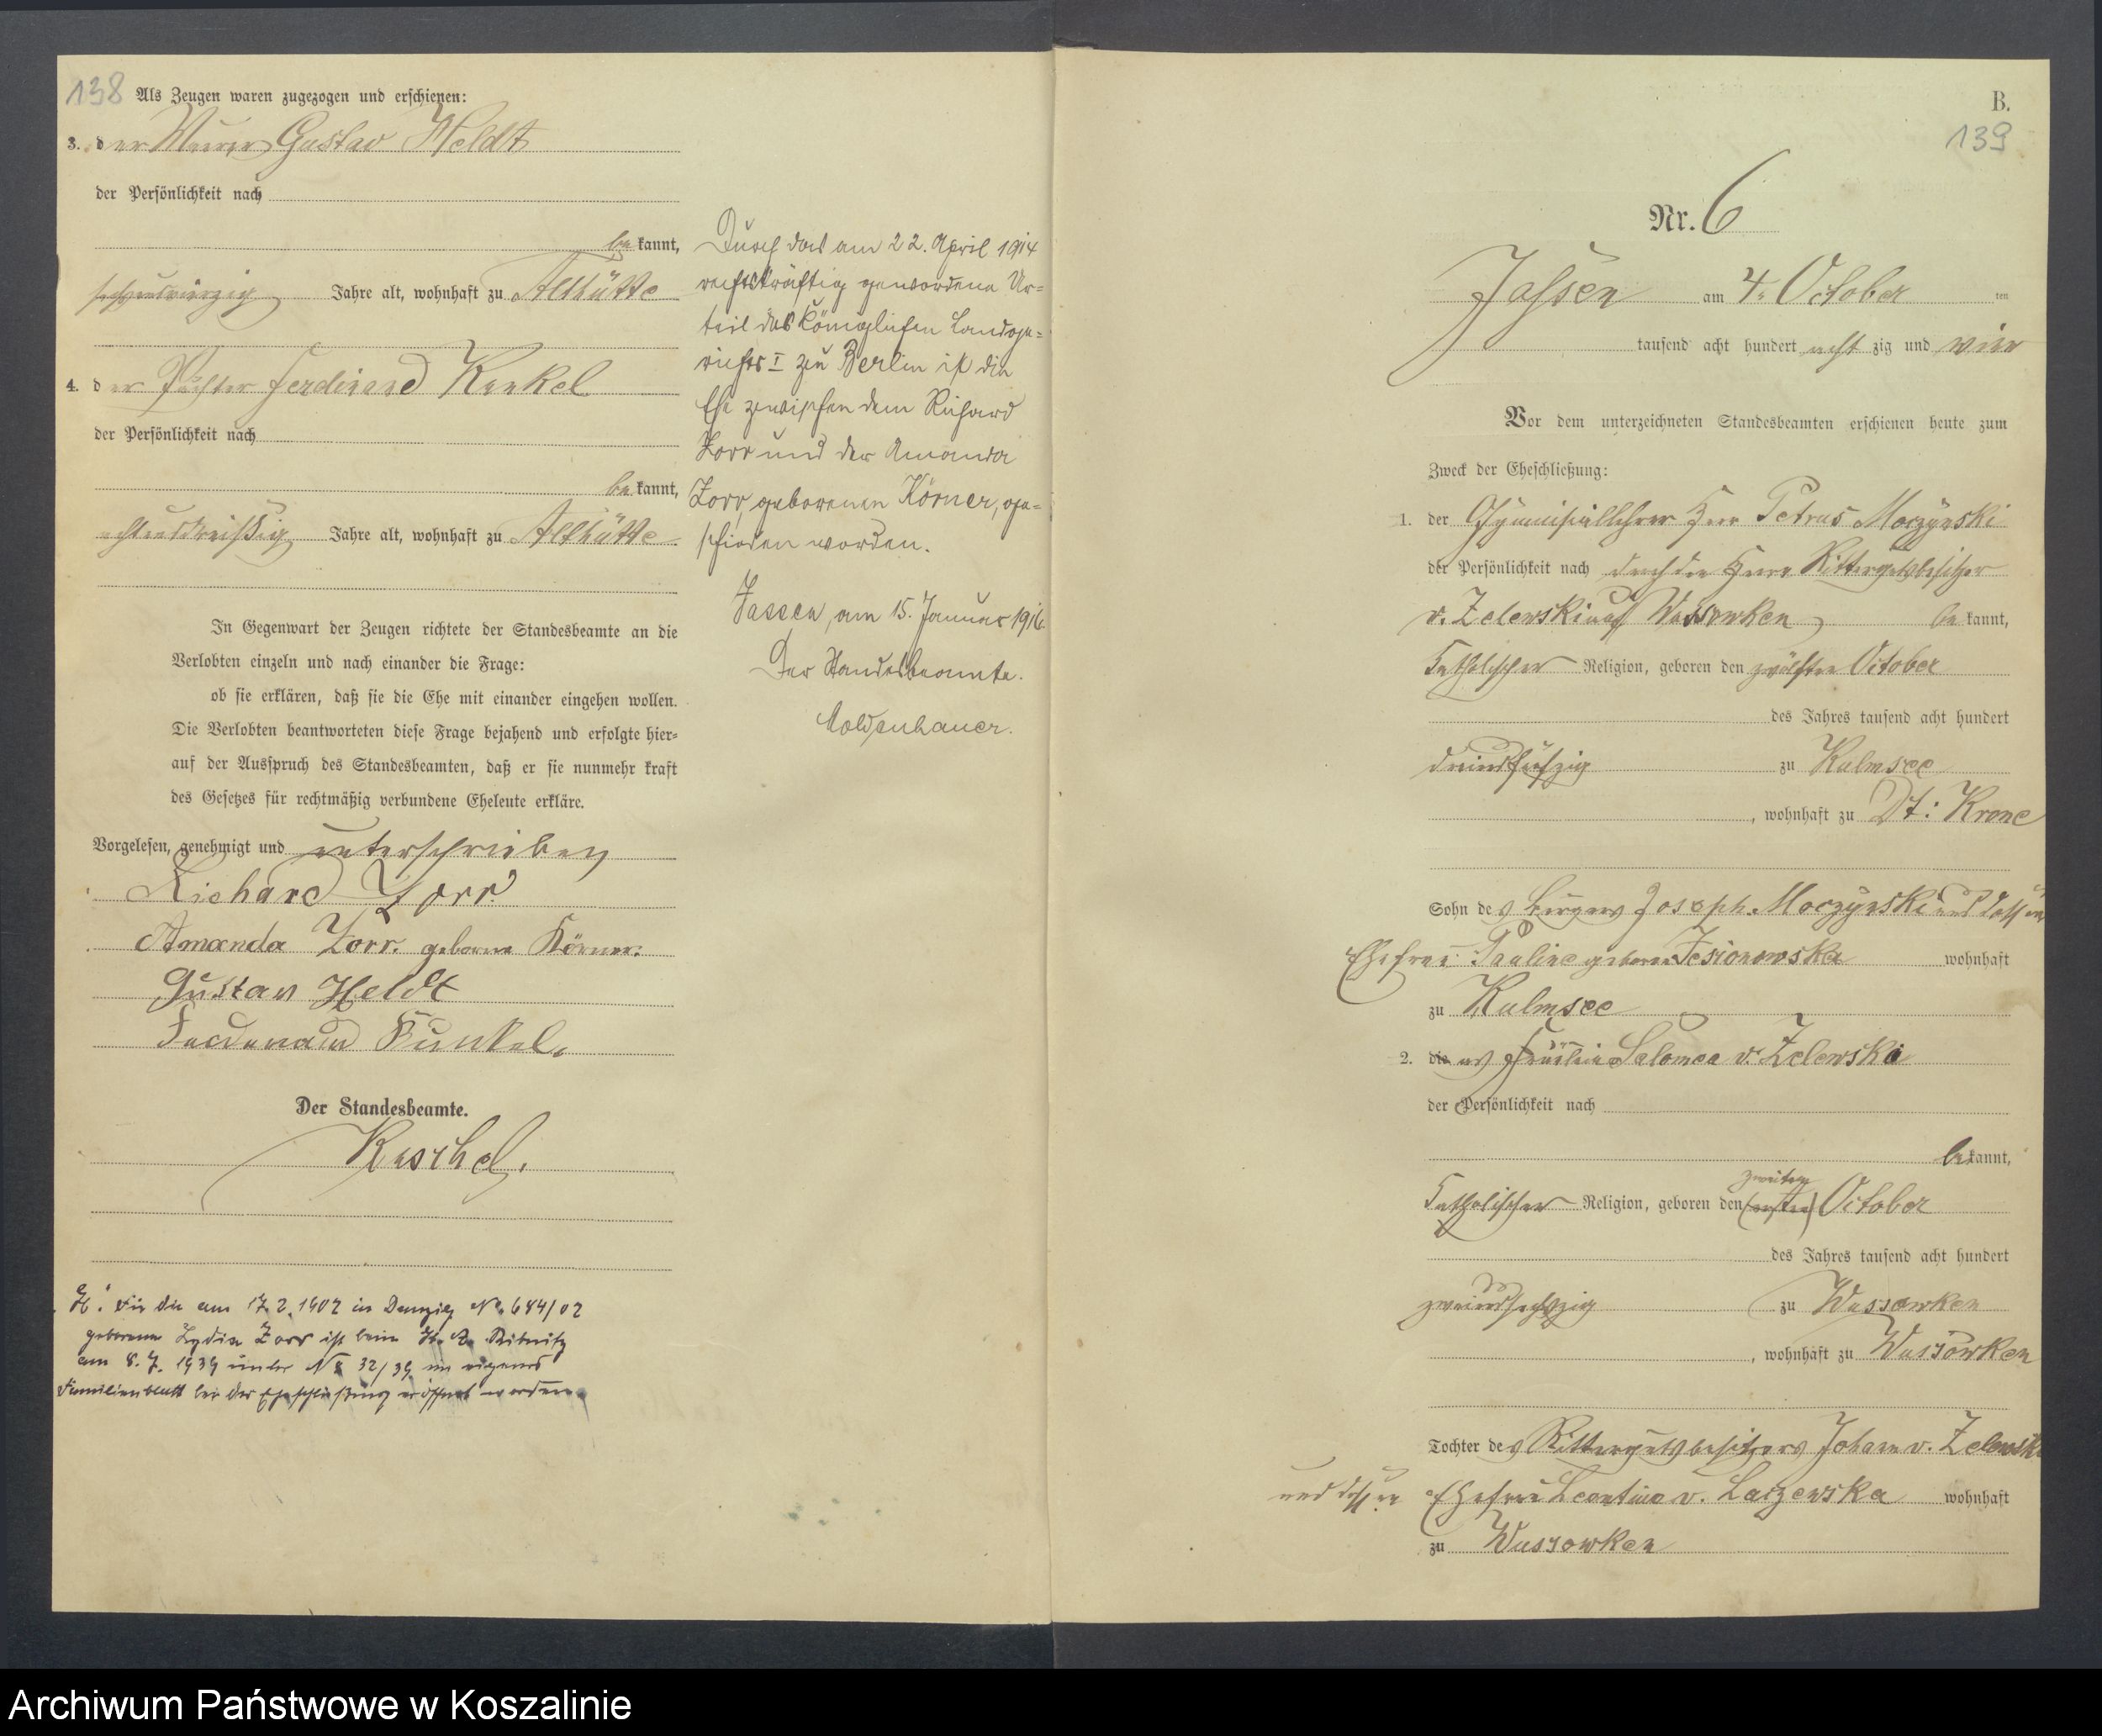 138 Als Zeugen waren zugezogen und erschienen:
3. der Maurer Gustav Heldt
der Persönlichkeit nach
bekannt,
sechsundvierzig Jahre alt, wohnhaft zu Althütte
4. der Pächter Ferdinand Kunkel
der Persönlichkeit nach
bekannt,
achtunddreißig Jahre alt, wohnhaft zu Althütte
In Gegenwart der Zeugen richtete der Standesbeamte an die
Verlobten einzeln und nach einander die Frage:
ob sie erklären, daß sie die Ehe mit einander eingehen wollen.
Die Verlobten beantworteten diese Frage bejahend und erfolgte hier=
auf der Ausspruch des Standesbeamten, daß er sie nunmehr kraft
des Gesetzes für rechtmäßig verbundene Eheleute erkläre.
Vorgelesen, genehmigt und unterschrieben
Richard Zorr
Amanda Zorr. geborne Körner.
Gustav Heldt
Ferdinand Kunkel.
Der Standesbeamte.
Kuschel.
H. Für die am 17.2.1902 in Danzig No. 644/02
geborene Lydia Zorr ist beim St. A.
am 8.7.1939 unter No 32/39 ein eigenes
Familienblatt bei der Eheschließung eröffnet worden.
Durch das am 22. April 1914
rechtskräftig gewordene Ur=
teil des Königlichen Landge=
richts I zu Berlin ist die
Ehe zwischen dem Richard
Zorr und der Amanda
Zorr, geborenen Körner, ge=
schieden worden.
Jassen, am 15. Januar 1916.
Der Standesbeamte.
Moldenhauer.
B.
139
Nr. 6
Jassen am 4. October ten
tausend acht hundert acht zig und vier
Vor dem unterzeichneten Standesbeamten erschienen heute zum
Zweck der Eheschließung:
1. der Gymnasiallehrer Herr Petrus Moczynski
der Persönlichkeit nach durch den Herrn Rittergutsbesitzer
v. Zelewski auf Wussowken bekannt,
katholischer Religion, geboren den zwölften October
des Jahres tausend acht hundert
dreiundfünfzig zu Kulmsee
, wohnhaft zu Dt: Krone
Sohn des Bürgers Joseph Moczynski und dessen
Ehefrau Pauline geboren Jesionowska wohnhaft
zu Kulmsee
2. die Fräulein Salomea v. Zelewska
der Persönlichkeit nach
bekannt,
zweiten
katholischer Religion, geboren den (ersten) October
des Jahres tausend acht hundert
zweiundsechszig zu Wussowken
, wohnhaft zu Wussowken
Tochter des Rittergutsbesitzers Johann v. Zelewski
und dessen Ehefrau Leontine v. Laczewska wohnhaft
zu Wussowken
Archiwum Państwowe w Koszalinie